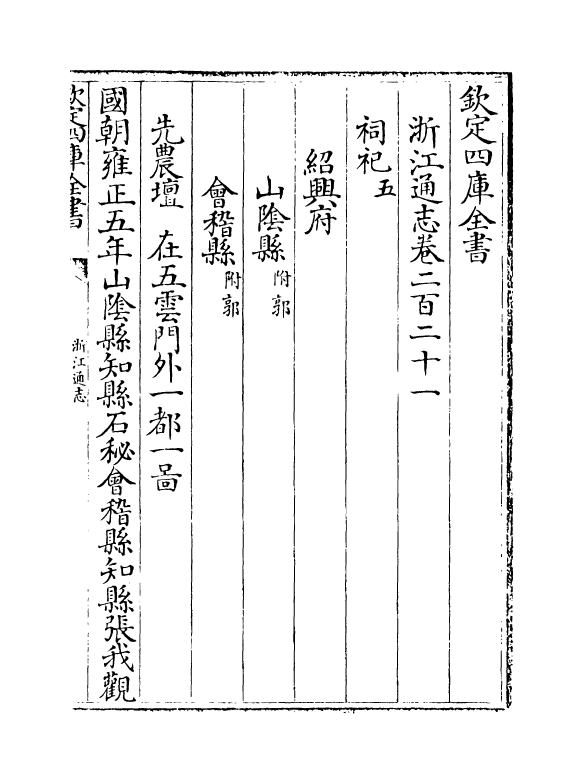 欽定四庫全書
浙江通志卷二百二十一
祠祀五
紹興府
山隂縣附郭
會稽縣附郭
先農壇 在五雲門外一都一啚
國朝雍正五年山隂縣知縣石秘會稽縣知縣張我觀
欽定四庫全書
浙江通志